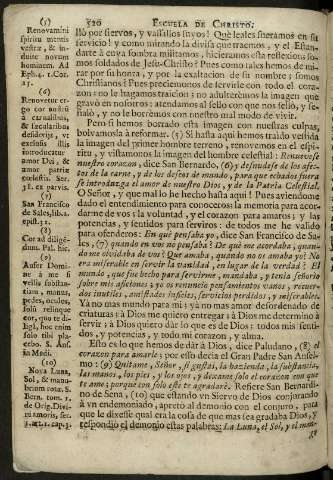 520 ESCUELA DE CHRISTO.
llò por siervos, y vassallos suyos! Què leales fueramos en su
servicio! y como mirando la divisa que traemos, y el Estan-
darte à cuya sombra militamos, hicieramos esta reflexion: so-
mos soldados de Jesu-Christo! Pues como tales hemos de mi-
rar por su honra, y por la exaltacion de su nombre; somos
Christianos! Pues preciemonos de servirle con todo el cora-
zon: no le hagamos traicion; no adulteremos la imagen que
gravò en nosotros: atendamos al sello con que nos sellò, y se-
ñalò, y no le borremos con nuestro mal modo de vivir.
Pero si hemos borrado esta imagen con nuestras culpas,
bolvamosla à reformar. (5) Si hasta aqui hemos traìdo vestida
la imagen del primer hombre terreno, renovemos en el espi-
ritu, y vistamonos la imagen del hombre celestial: Renuevese
nuestro corazon, dice San Bernardo, (6) y desnudese de los afec-
tos de la carne, y de los deseos de mundo, para que echados fuera
se introduzga el amor de nuestro Dios, y de la Patria Celestial.
O Señor, y què mal lo he hecho hasta aqui! Pues aviendome
dado el entendimiento para conoceros: la memoria para acor-
darme de vos: la voluntad, y el corazon para amaros; y las
potencias, y sentidos para serviros: de todos me he valido
para ofenderos: En què pensaba yo, dice San Francisco de Sa-
les, (7) quando en vos no pensaba? De què me acordaba, quan-
do me olvidaba de vos? Què amaba, quando no os amaba yo? No
era miserable en servir la vanidad, en lugar de la verdad? El
mundo, que fue hecho para servirme, mandaba, y tenia señorio
sobre mis aficiones; yo os renuncio pensamientos vanos, recuer-
dos inutiles, amistades infieles, servicios perdidos, y miserables.
Ya no mas mundo para mi: yà no mas amor desordenado de
criaturas: à Dios me quiero entregar: à Dios me determino à
servir; à Dios quiero dàr lo que es de Dios: todos mis senti-
dos, y potencias, y todo mi corazon, y alma.
Esto es lo que hemos de dàr à Dios, dice Paludano, (8) el
corazon para amarle; por esso decia el Gran Padre San Ansel-
mo: (9) Quitame, Señor, si gustas, la hazienda, la substancia,
las manos, los pies, y los ojos, y dexame solo el corazon con que
te ame; porque con solo este te agradarè. Refiere San Bernardi-
no de Sena, (10) que estando vn Siervo de Dios conjurando
à vn endemoniado, apretò al demonio con el conjuro, para
que le dixesse qual era la cosa de que mas se agradaba Dios, y
respondiò el demonio estas palabras: La Luna, el Sol, y el man-
(5)
Renovamini
spiritu mentis
vestræ, & in-
duite novum
hominem. Ad
Eph. 4. 1. Cor.
15.
(6)
Renovetur er-
go cor nostrũ
à carnalibus,
& sæcularibus
desiderijs, vt
exclusis illis
introducatur
amor Dei, &
amor patriæ
cœlestis. Ser.
31. ex parvis.
(7)
San Francisco
de Sales, lib. 2.
epist. 21.
(8)
Cor ad diligẽ-
dum. Pal. hic.
(9)
Aufer Domi-
ne à me si
velis substan-
tiam, manus,
pedes, oculos,
solũ relinque
cor, quo te di-
ligã, hoc enim
solo tibi pla-
cebo. S. Ans.
in Medi.
(10)
Nova Luna,
Sol, & manu-
brium rotæ. S.
Bern. tom. 1.
de Orig. Divi-
ni amoris, ser.